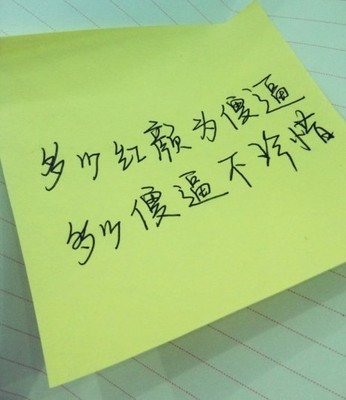 多少红颜为傻逼
多少傻逼不珍惜